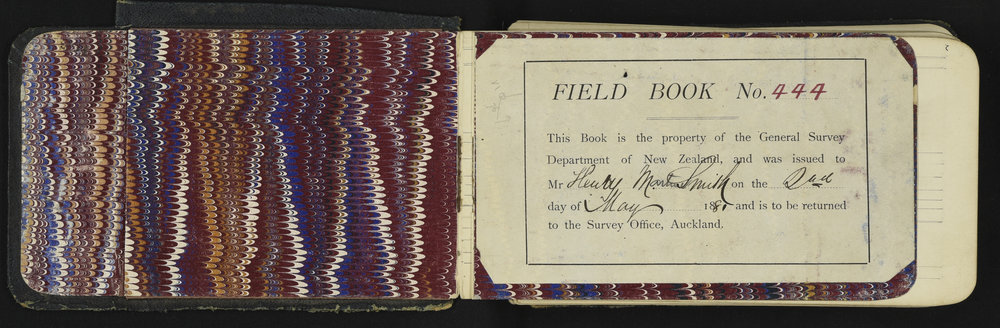 FIELD BOOK No. 444
This Book is the property of the General Survey
Department of New Zealand, and was issued to
Mr Henry Martin Smith on the 2nd
day of May 188 and is to be returned
to the Survey Office, Auckland.